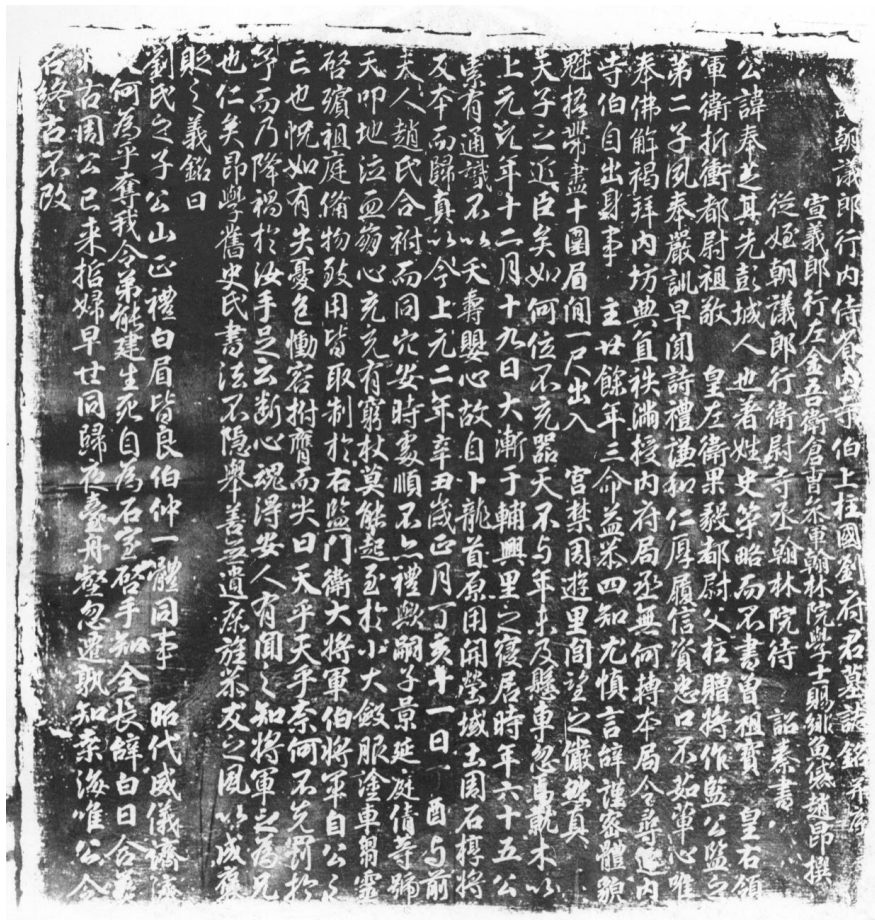 朝議郎行內侍省內寺伯上柱國劉府君墓誌銘并序
宣義郎行左金吾衛倉曹參軍翰林院學士賜緋魚袋趙昂撰
從姪朝議郎行衛尉寺丞翰林院待 詔秦書
公諱奉芝其先彭城人也著姓史筞略而不書曾祖寶 皇右領
軍衛折衝都尉祖敬 皇左衛果毅都尉父柱贈將作監公監之
第二子夙奉嚴訓早聞詩禮謙和仁厚履信資忠口不茹葷心唯
奉佛解褐拜內坊典直袟滿授內府局丞無何轉本局令尋遷內
寺伯自出身事 主廿餘年三命益恭四知尤慎言辭謹密體貌
魁梧帶盡十圍眉間一尺出入 宮禁周遊里閭望之儼然真
天子之近臣矣如何位不充器天不与年未及懸車忽焉就木以
上元元年十二月十九日大漸于輔興里之寢居時年六十五公
素有通識不以夭壽嬰心故自卜龍首原用開塋域土周石槨將
反本而歸真以今上元二年辛丑歲正月丁亥十一日丁酉与前
夫人趙氏合祔而同穴安時處順不亦禮歟嗣子景延庭倩等號
天叩地泣血崩心充充有窮杖莫能起至於小大斂服塗車芻靈
啓殯祖庭俻物致用皆取制於右監門衛大將軍伯將軍自公之
亡也怳如有失憂色慟容拊膺而哭曰天乎天乎奈何不先罰於
予而乃降禍於汝手足云断心魂淂安人有聞之知將軍之為兄
也仁矣昂學舊史氏書法不隱舉善無遺庶旌恭友之風以成褒
貶之義銘曰
劉氏之子公山正禮白眉皆良伯仲一體同事 昭代威儀濟濟
天何為乎奪我令弟能建生死自為石室啓手知全長辭白日合葬
古周公已來指婦早世同歸夜臺舟壑忽遷孰知桒海唯公令
名終古不改